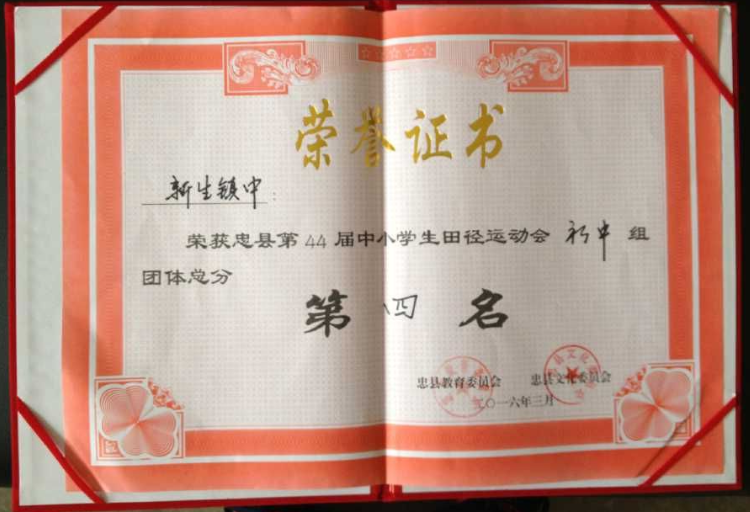 荣誉证书
新生镇中：
荣获忠县第44届中小学生田径运动会 初中 组
团体总分
第四名
忠县教育委员会 忠县文化委员会
二〇一六年三月